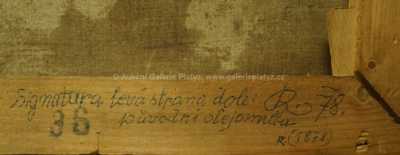 © Aukční Galerie Platýz, www.galerieplatyz.cz
Signatura levá strana dole: R. 78.
36 původní olejomalba
R (1878)